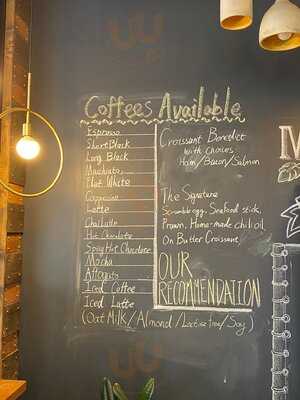 Coffees Available
Espresso
Short Black
Long Black
Machiato
Flat White
Cappucino
Latte
Chailatte
Hot Chocolate
Spicy Hot Chocolate
Mocha
Affogato
Iced Coffee
Iced Latte
(Oat Milk/Almond/Lactose free/Soy)
Croissant Benedict
with choices
Ham/Bacon/Salmon
The Signature
Scramble egg, Seafood stick,
Prawn, Home-made chili oil
On Butter Croissant
OUR
RECOMMENDATION
M